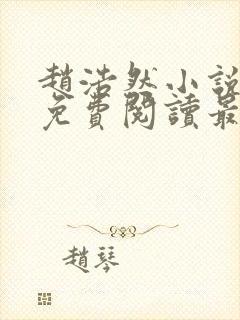 趙浩然小說
免費閱讀最
趙琴